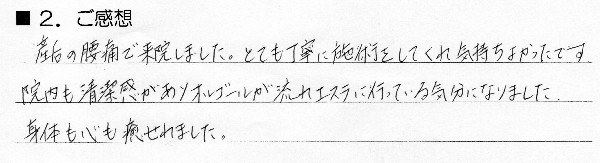 ■２．ご感想
産后の腰痛で来院しました。とても丁寧に施術をしてくれ気持ちよかったです
院内も清潔感がありオルゴールが流れエステに行っている気分になりました.
身体も心も癒せれました。